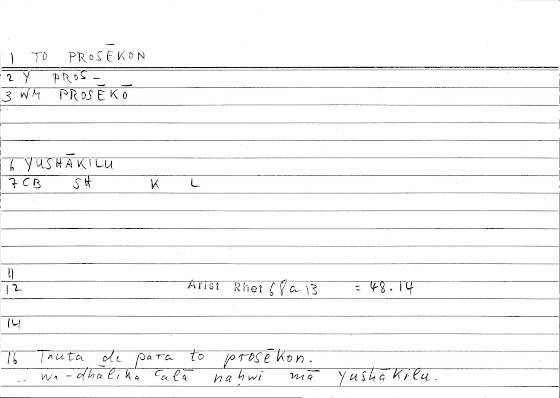 1 TO PROSĒKON
2 Y PROS-
3 WM PROSĒKŌ
6 YUSHĀKILU
7 CB SH K L
11
12 Arist Rhet 68a13 = 48.14
14
16 Tauta de para to prosēkon.
.. wa-dhālika ʿalā naḥwi mā yushākilu.